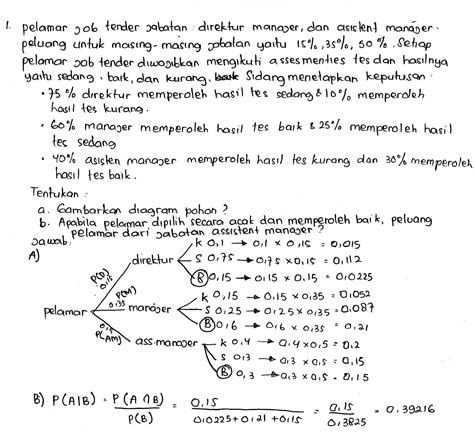 1. pelamar job tender jabatan : direktur manajer, dan asistent manajer.
peluang untuk masing-masing jabatan yaitu 15%, 35%, 50%. Setiap
pelamar job tender diwajibkan mengikuti assesmenties tes dan hasilnya
yaitu sedang, baik, dan kurang, baik Sidang menetapkan keputusan :
• 75% direktur memperoleh hasil tes sedang & 10% memperoleh
hasil tes kurang.
• 60% manajer memperoleh hasil tes baik & 25% memperoleh hasil
tes sedang
• 40% asisten manajer memperoleh hasil tes kurang dan 30% memperoleh
hasil tes baik.
Tentukan :
a. Gambarkan diagram pohon ?
b. Apabila pelamar dipilih secara acak dan memperoleh baik, peluang
pelamar dari jabatan assistent manajer ?
Jawab :
A)
K 0,1 → 0,1 x 0,15 = 0,015
P(D) 0,15 direktur S 0,75 → 0,75 x 0,15 = 0,112
B 0,15 → 0,15 x 0,15 = 0,0225
K 0,15 → 0,15 x 0,35 = 0,052
pelamar P(M) 0,35 manajer S 0,25 → 0,25 x 0,35 = 0,087
B 0,6 → 0,6 x 0,35 = 0,21
P(AM) ass.manajer K 0,4 → 0,4 x 0,5 = 0,2
S 0,3 → 0,3 x 0,5 = 0,15
B 0,3 → 0,3 x 0,5 = 0,15
B) P(A|B) = P(A ∩ B) / P(B) = 0,15 / 0,0225 + 0,21 + 0,15 = 0,15 / 0,3825 = 0,39216